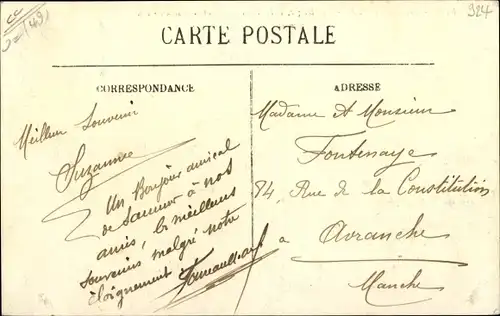 324
CARTE POSTALE
CORRESPONDANCE
Meilleur Souvenir
Suzanne
Un Bonjour amical
de Saumur à nos
amis, les meilleurs
souvenirs malgré notre
éloignement
ADRESSE
Madame et Monsieur
Fontenaye
84, Rue de la Constitution
à Avranche
Manche